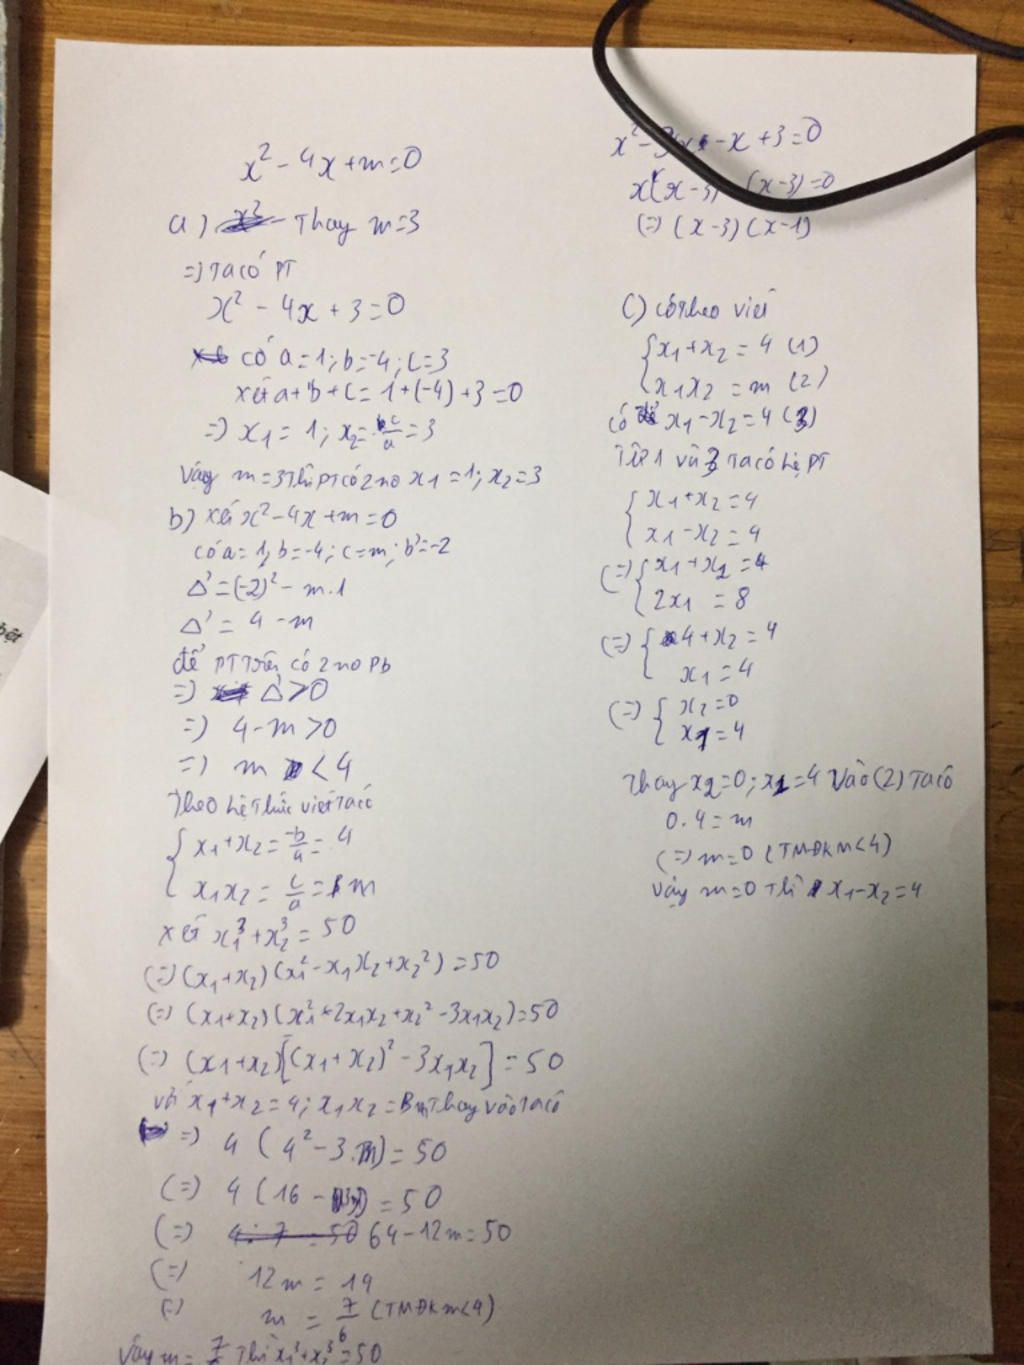 x² - 4x + m = 0
a) Thay m = 3
=) Ta có PT
x² - 4x + 3 = 0
có a = 1; b = -4; c = 3
xét a + b + c = 1 + (-4) + 3 = 0
=) x₁ = 1; x₂ = c/a = 3
Vậy m = 3 thì PT có 2 no x₁ = 1; x₂ = 3
b) xét x² - 4x + m = 0
có a = 1, b = -4; c = m; b' = -2
Δ' = (-2)² - m.1
Δ' = 4 - m
để PT trên có 2 no Pb
=) Δ' > 0
=) 4 - m > 0
=) m < 4
Theo hệ thức viet ta có
{ x₁ + x₂ = -b/a = 4
x₁x₂ = c/a = m
xét x₁³ + x₂³ = 50
(=) (x₁ + x₂) (x₁² - x₁x₂ + x₂²) = 50
(=) (x₁ + x₂) (x₁² + 2x₁x₂ + x₂² - 3x₁x₂) = 50
(=) (x₁ + x₂) [(x₁ + x₂)² - 3x₁x₂] = 50
với x₁ + x₂ = 4; x₁x₂ = m Thay vào ta có
=) 4 (4² - 3.m) = 50
(=) 4 (16 - 3m) = 50
(=) 64 - 12m = 50
(=) 12m = 14
(=) m = 7/6 (TMĐK m < 4)
Vậy m = 7/6 Thì x₁³ + x₂³ = 50
x² - 3x - x + 3 = 0
x(x - 3) (x - 3) = 0
(=) (x - 3) (x - 1)
C) có theo viet
{ x₁ + x₂ = 4 (1)
x₁x₂ = m (2)
có x₁ - x₂ = 4 (3)
Từ 1 và 3 ta có hệ PT
{ x₁ + x₂ = 4
x₁ - x₂ = 4
(=) { x₁ + x₂ = 4
2x₁ = 8
(=) { 4 + x₂ = 4
x₁ = 4
(=) { x₂ = 0
x₁ = 4
Thay x₂ = 0; x₁ = 4 Vào (2) Ta có
0.4 = m
(=) m = 0 (TMĐK m < 4)
Vậy m = 0 thì x₁ - x₂ = 4